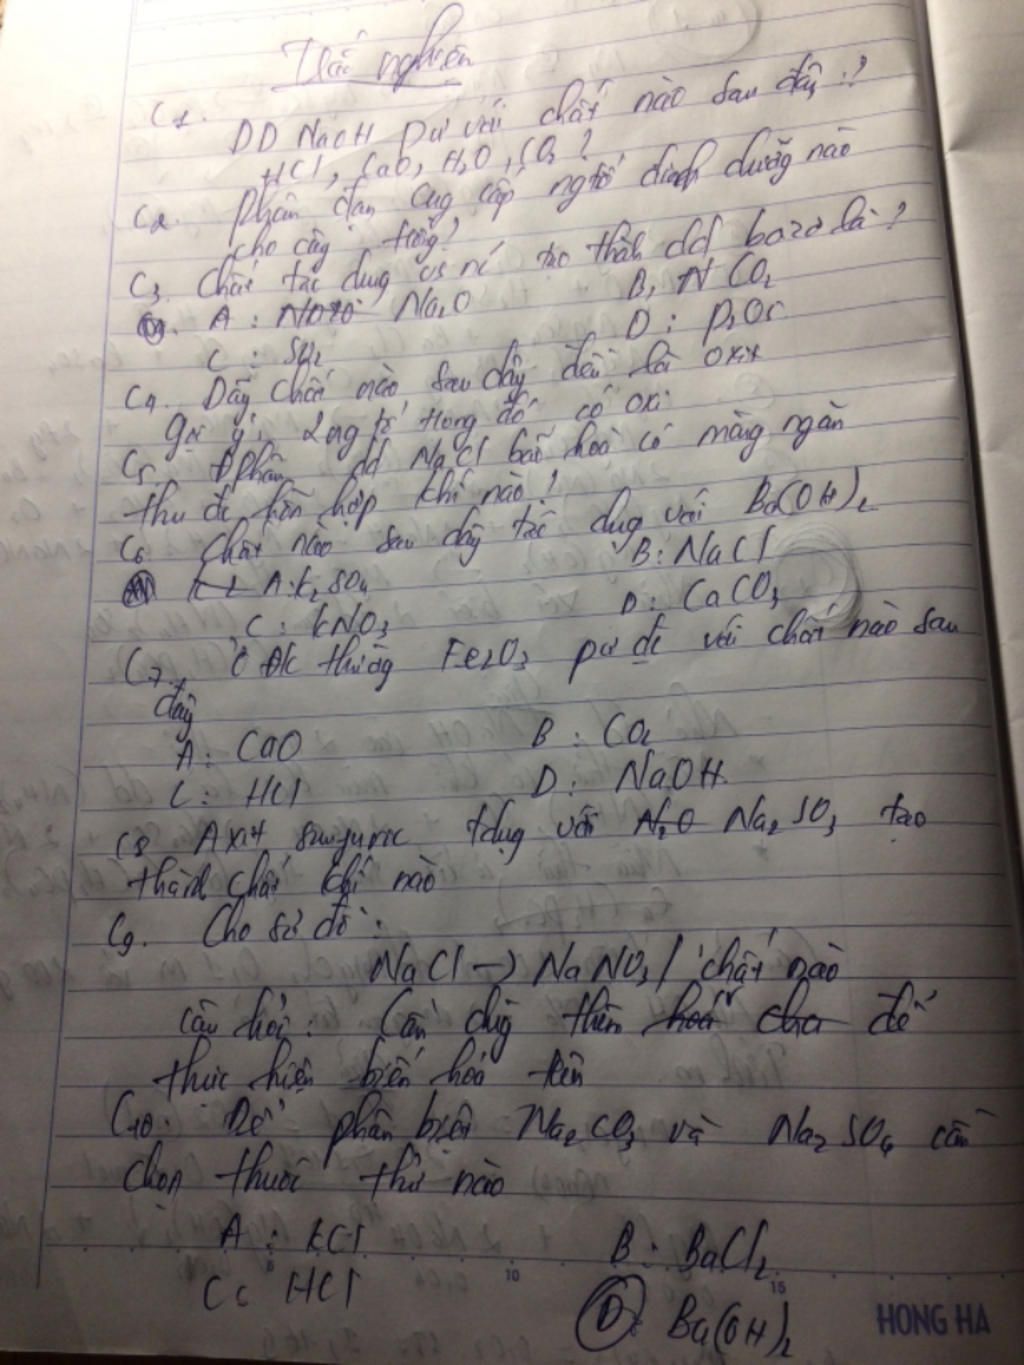 Trắc nghiệm
C1.
DD NaOH pư với chất nào sau đây:?
HCl, CaO, H2O, CO2?
C2. Phân đạm cug cấp ngtố dinh dưỡg nào
cho cây trồg?
C3. Chất tác dug nc tạo thàh dd bazơ là?
A: Na2O B, N CO2
C: SO2 D: P2O5
C4. Dãy chất nào sau đây đều là oxit
gợi ý: 2 ng tố trong đó có oxi
C5. Đphân dd NaCl bão hoà có màng ngăn
thu đc hỗn hợp khí nào?
C6 Chất nào sau đây tác dug với Ba(OH)2
A: K2SO4 B: NaCl
C: KNO3 D: CaCO3
C7. ở đk thườg Fe2O3 pư đc với chất nào sau
đây
A: CaO B: CO2
C: HCl D: NaOH
C8 Axit sunfuric tdụg với Na2SO3 tạo
thành chất khí nào
C9. Cho sơ đồ:
NaCl → NaNO3 / chất nào
câu hỏi: Cần dùg thêm hoá cha để
thực hiện biến hoá trên
C10. Để phân biệt Na2CO3 và Na2SO4 cần
chọn thuốc thử nào
A: KCl B: BaCl2
C: HCl D: Ba(OH)2
10 15
HONG HA